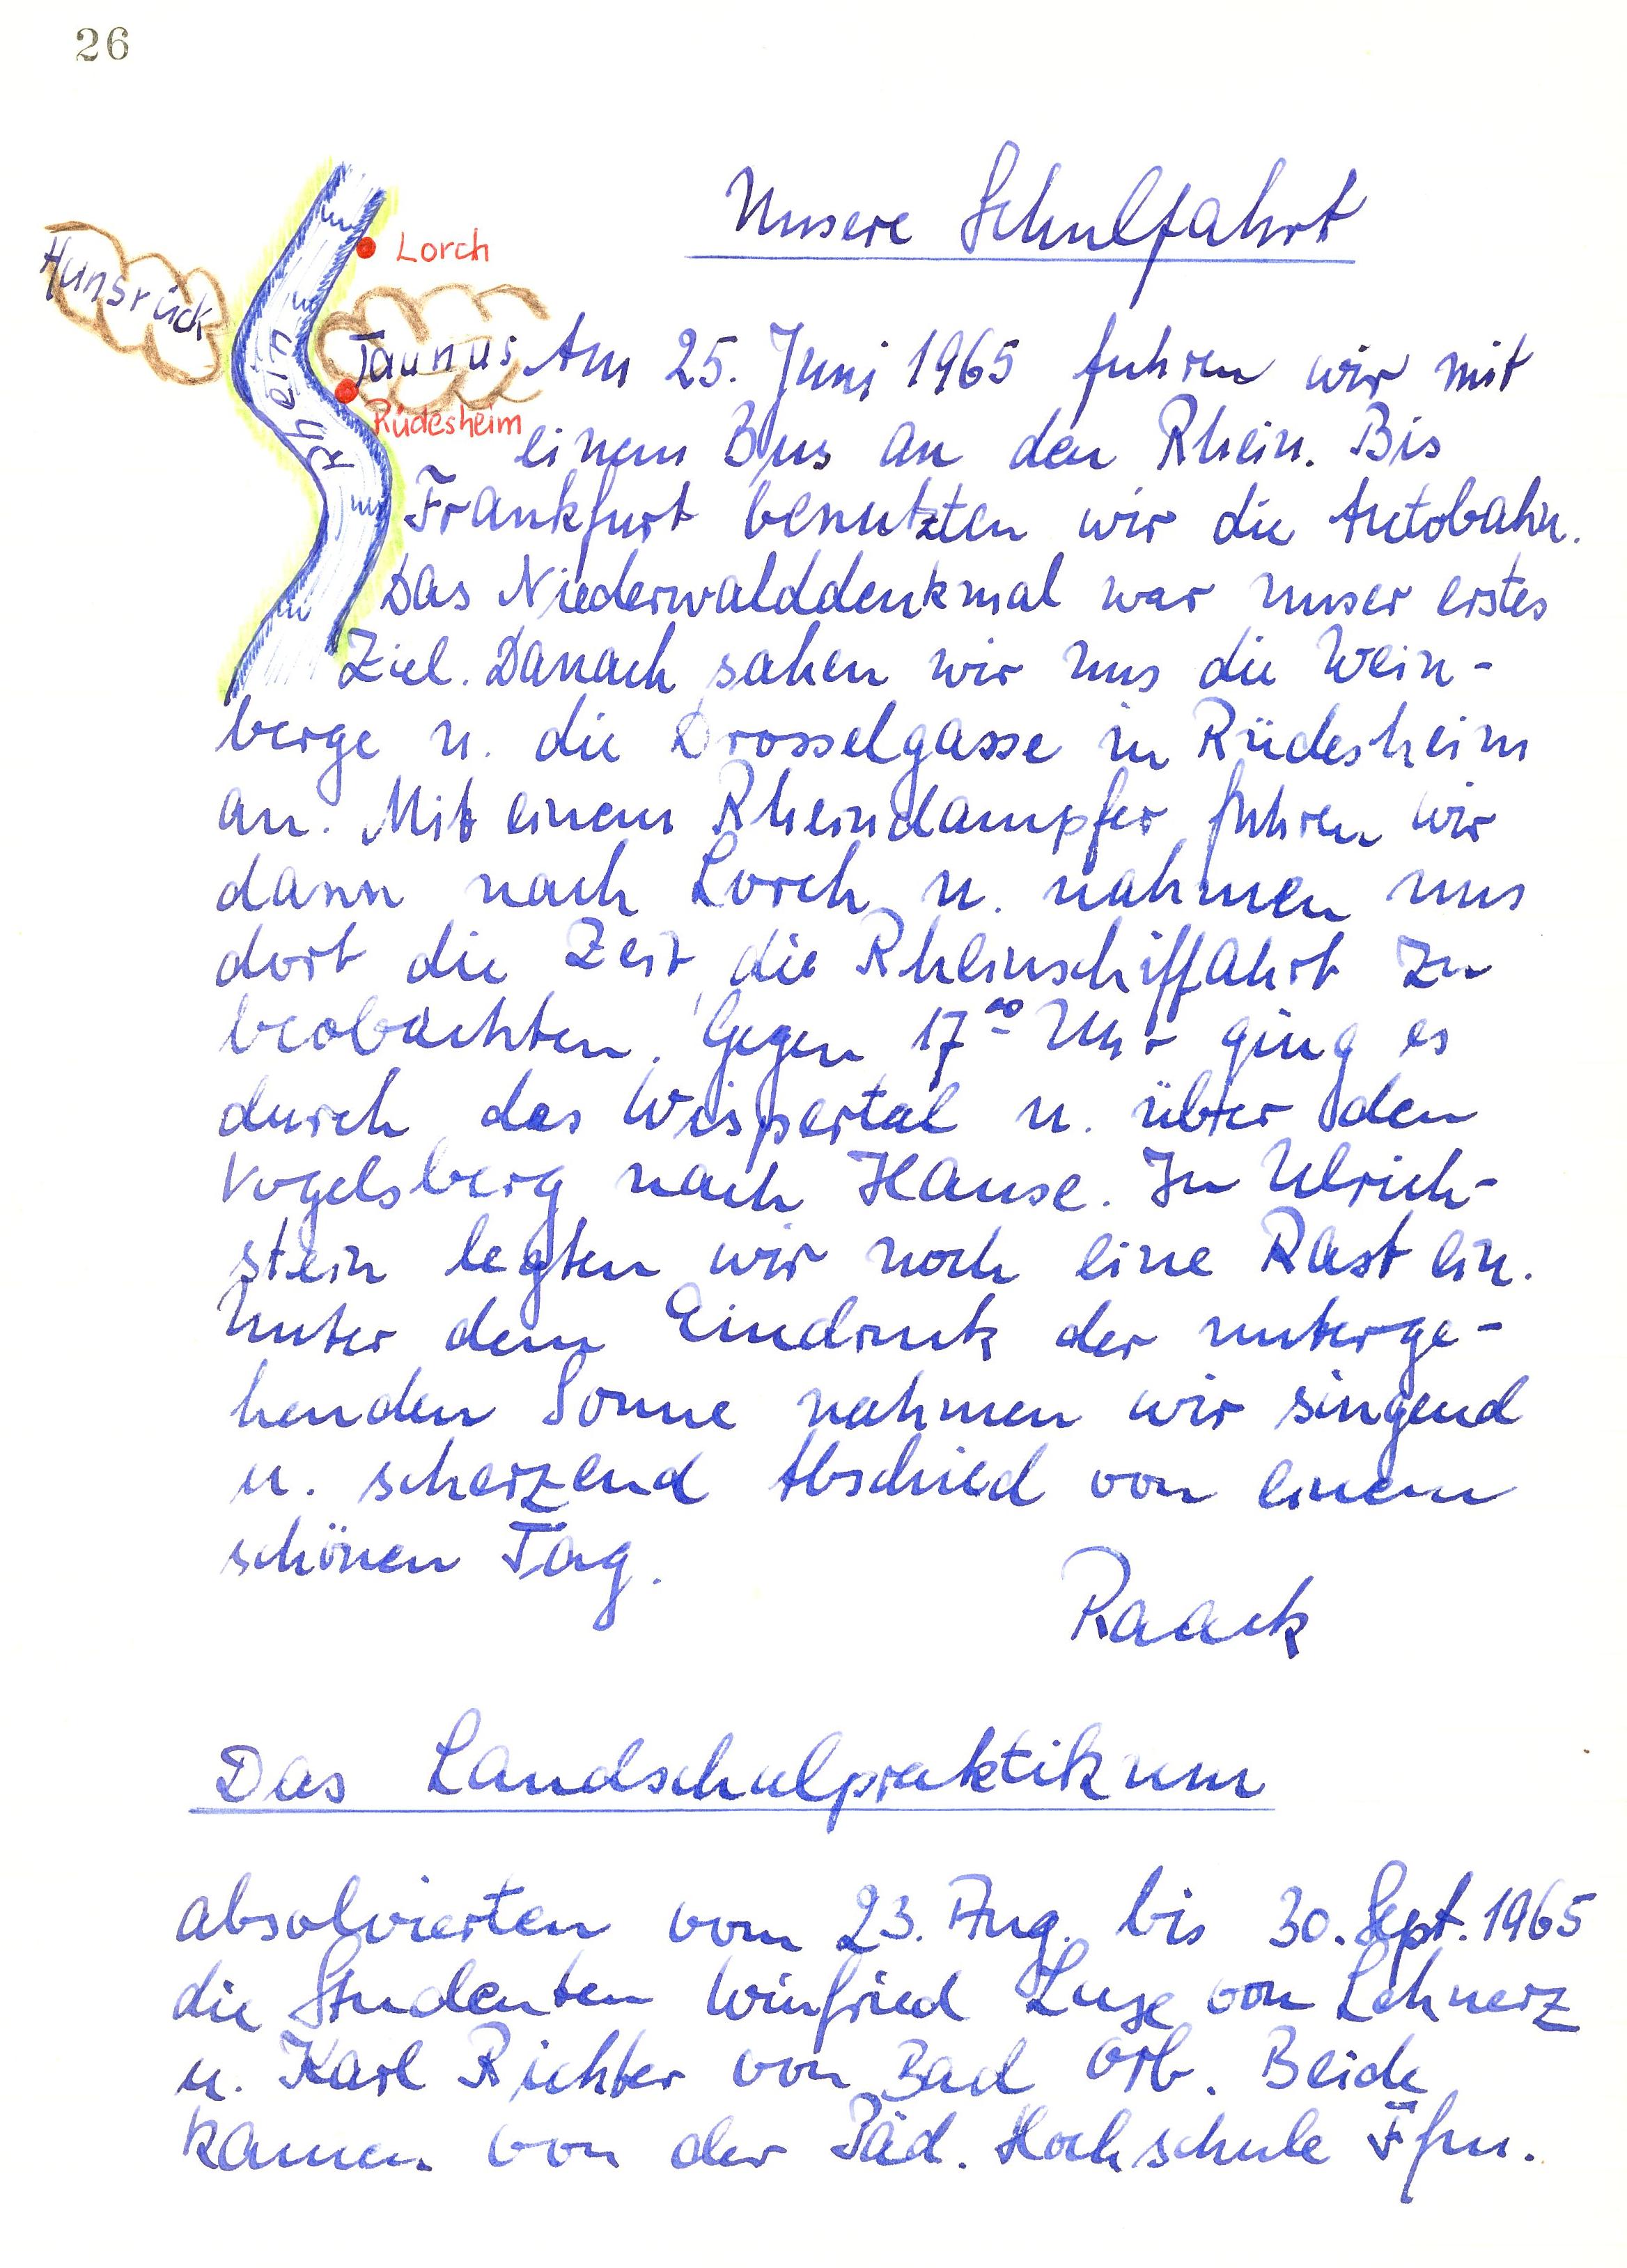 26
Unsere Schulfahrt
Hunsrück
Lorch
Taunus
Rüdesheim
Rhein
Am 25. Juni 1965 fuhren wir mit
einem Bus an den Rhein. Bis
Frankfurt benutzten wir die Autobahn.
Das Niederwalddenkmal war unser erstes
Ziel. Danach sahen wir uns die Wein-
berge u. die Drosselgasse in Rüdesheim
an. Mit einem Rheindampfer fuhren wir
dann nach Lorch u. nahmen uns
dort die Zeit, die Rheinschiffahrt zu
beobachten. Gegen 17⁰⁰ Uhr ging es
durch das Wispertal u. über den
Vogelsberg nach Hause. In Ulrich-
stein legten wir noch eine Rast ein.
Unter dem Eindruck der unterge-
henden Sonne nahmen wir singend
u. scherzend Abschied von einem
schönen Tag.
Raack
Das Landschulpraktikum
absolvierten vom 23. Aug. bis 30. Sept. 1965
die Studenten Winfried von Lehnerz
u. Karl Richter von Bad Orb. Beide
kamen von der Päd. Hochschule Ffm.